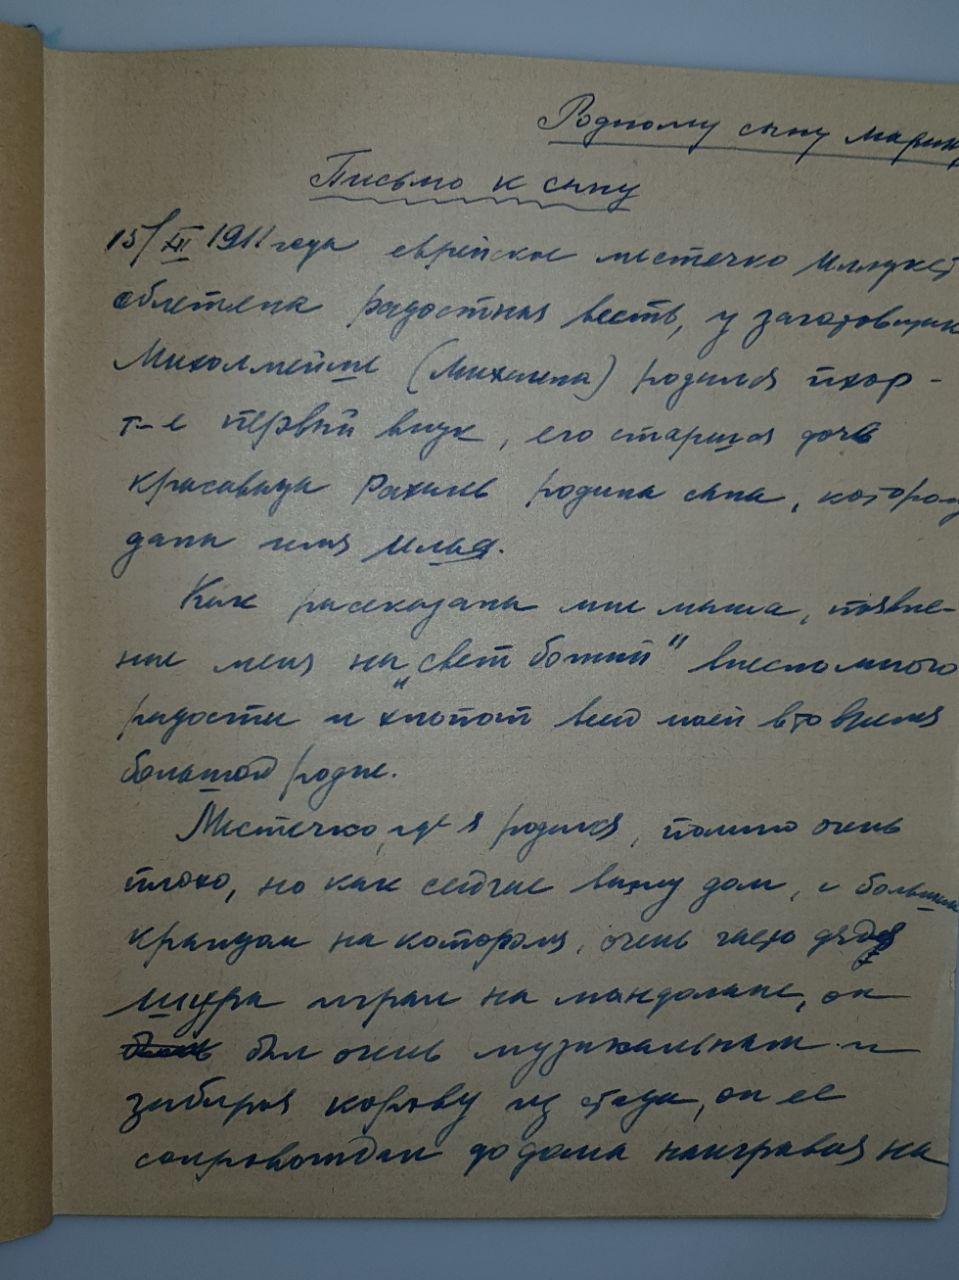 Родному сыну Марику
Письмо к сыну
15/XII 1911 года еврейское местечко Иллукст
облетела радостная весть, у заготовщика
Михолмейше (Михаила) родился
т-е первый внук, его старшая дочь
красавица Рахиль родила сына, котором
дали имя Илья.
Как рассказала мне мама, появле-
ние меня на „свет божий" внесло много
радости и хлопот всей моей в то время
большой родне.
Местечко, где я родился, помню очень
плохо, но как сейчас вижу дом, с большим
крыльцом на котором, очень часто дядя
Шура играл на мандолине, он
был очень музыкальным и
забирая корову из стада, он ее
сопровождал до дома наигравая на